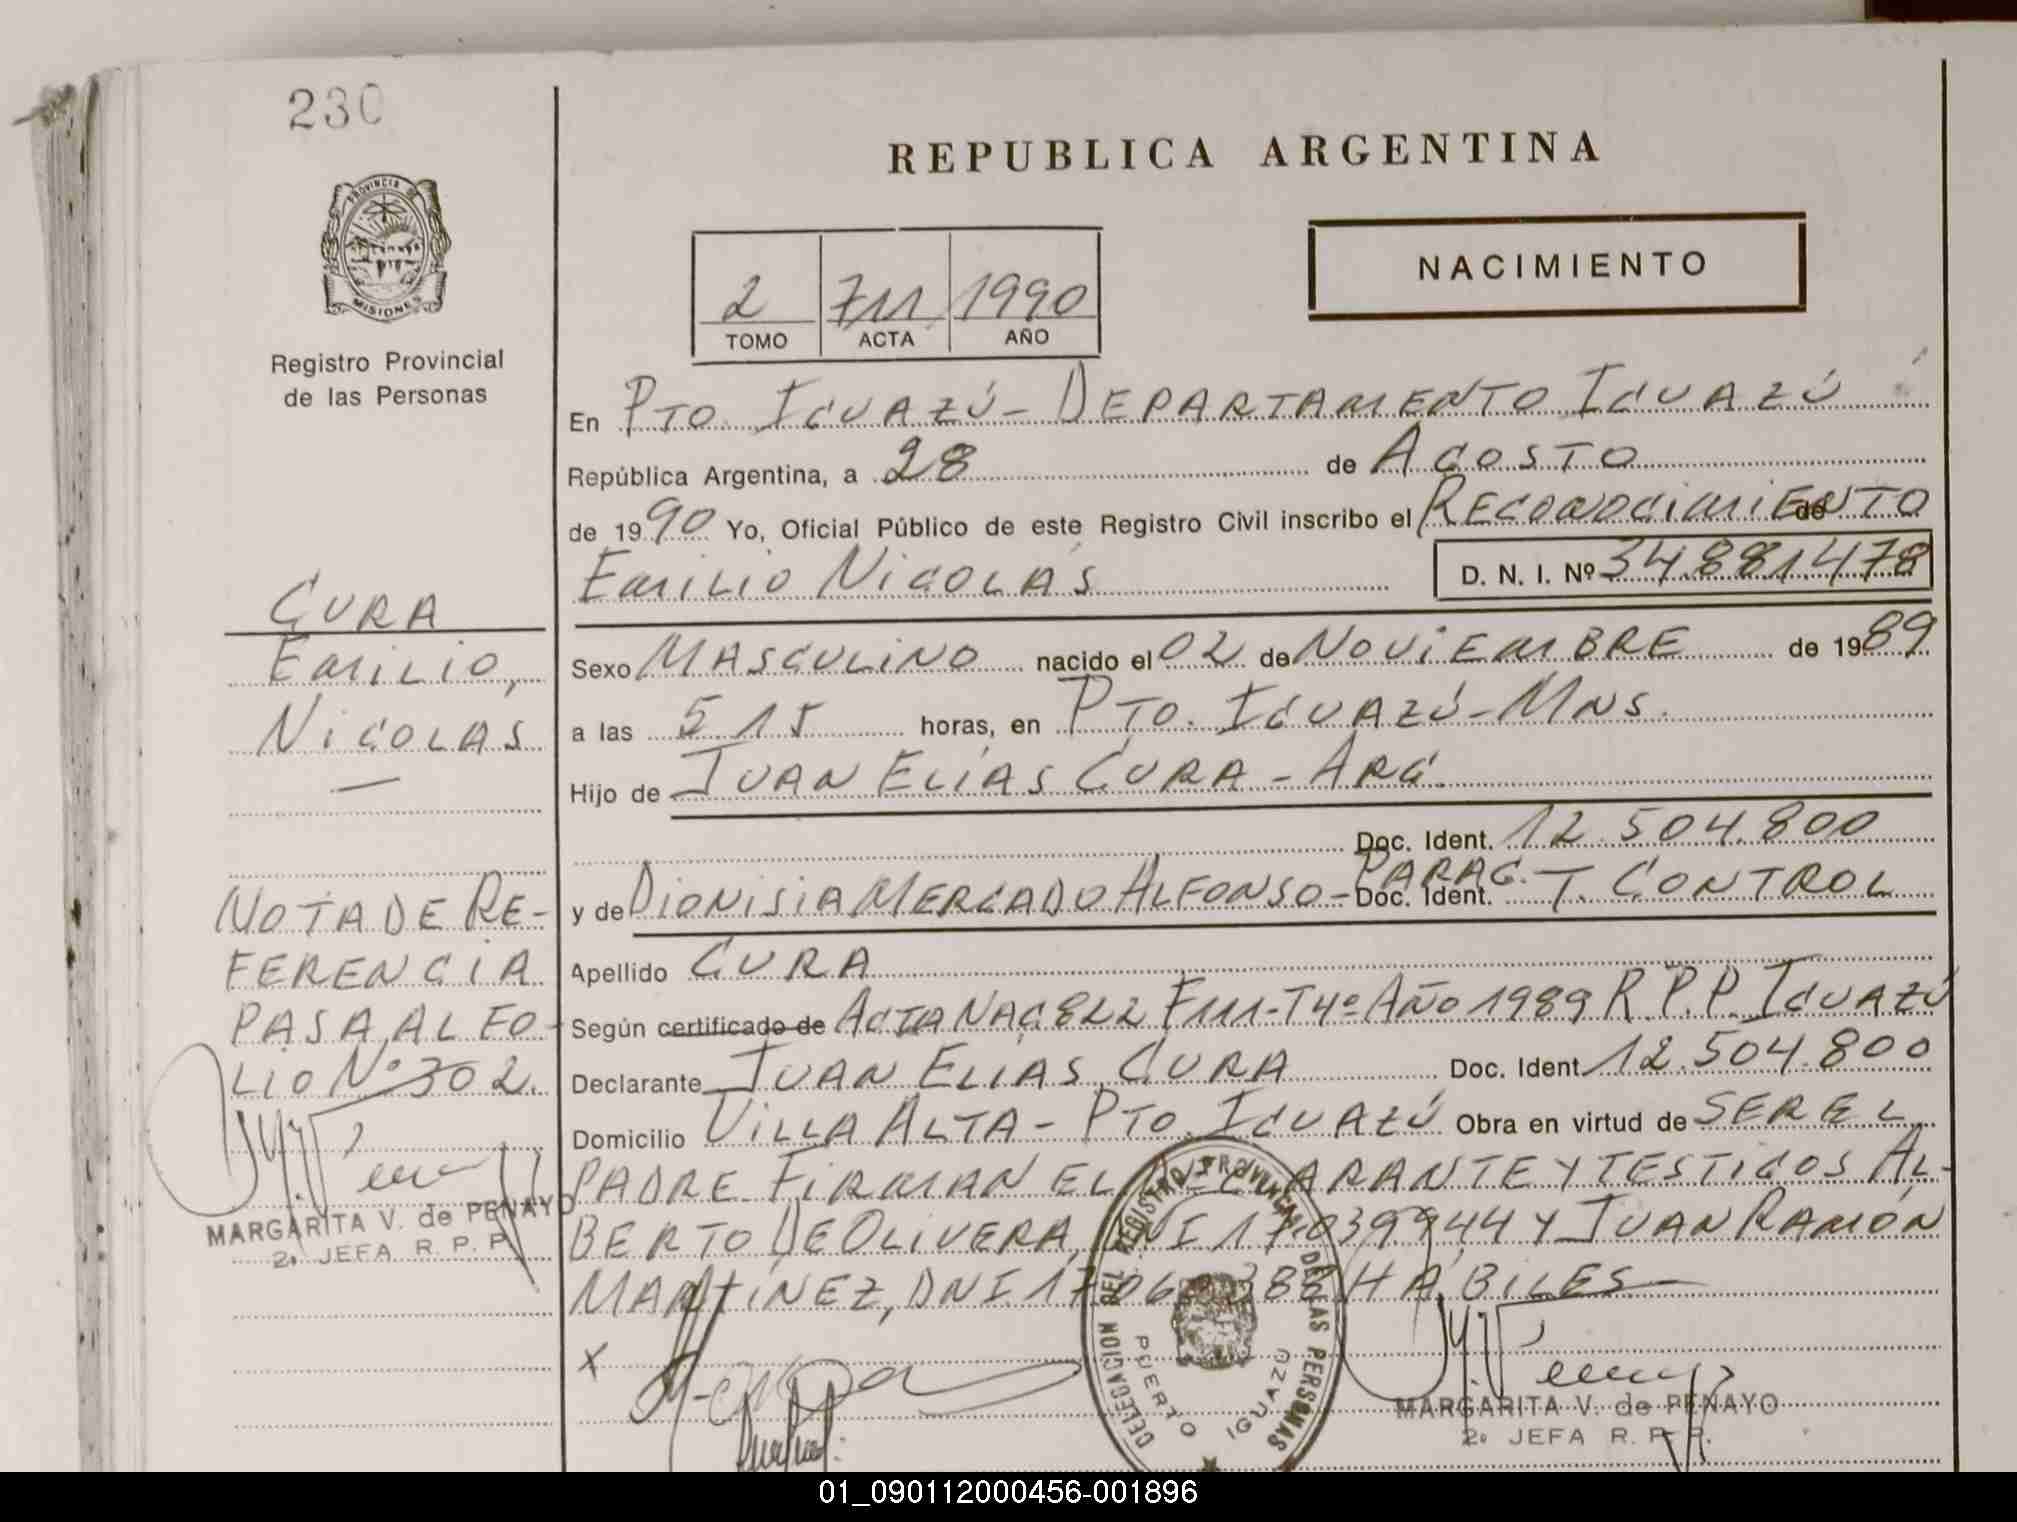 230
REPUBLICA ARGENTINA
PROVINCIA DE
MISIONES
Registro Provincial
de las Personas
2 711 1990
TOMO ACTA AÑO
NACIMIENTO
En PTO. IGUAZÚ - DEPARTAMENTO IGUAZÚ
República Argentina, a 28 de AGOSTO
de 1990 Yo, Oficial Público de este Registro Civil inscribo el RECONOCIMIENTO de
EMILIO NICOLÁS D. N. I. Nº 34.881.478
CURA
EMILIO,
NICOLAS
—
Sexo MASCULINO nacido el 02 de NOVIEMBRE de 1989
a las 5 15 horas, en PTO. IGUAZÚ - MNS.
Hijo de JUAN ELÍAS CURA - ARG.
Doc. Ident. 12.504.800
y de DIONISIA MERCADO ALFONSO - PARAG. Doc. Ident. T. CONTROL
Apellido CURA
Según certificado de ACTA NAC 822 F111 - T4º AÑO 1989 R.P.P. IGUAZÚ
Declarante JUAN ELIAS CURA Doc. Ident 12.504.800
Domicilio VILLA ALTA - PTO. IGUAZÚ Obra en virtud de SER EL
PADRE FIRMAN EL DECLARANTE Y TESTIGOS AL-
BERTO DE OLIVERA, DNI 17.039944 Y JUAN RAMÓN
MARTINEZ, DNI HÁBILES —
NOTA DE RE-
FERENCIA
PASA AL FO-
LIO Nº 302.
MARGARITA V. de PENAYO
2º JEFA R. P. P.
X
DELEGACION DEL REGISTRO PROVINCIAL DE LAS PERSONAS
PUERTO IGUAZU
MARGARITA V. de PENAYO
2º JEFA R. P. P.
01_090112000456-001896